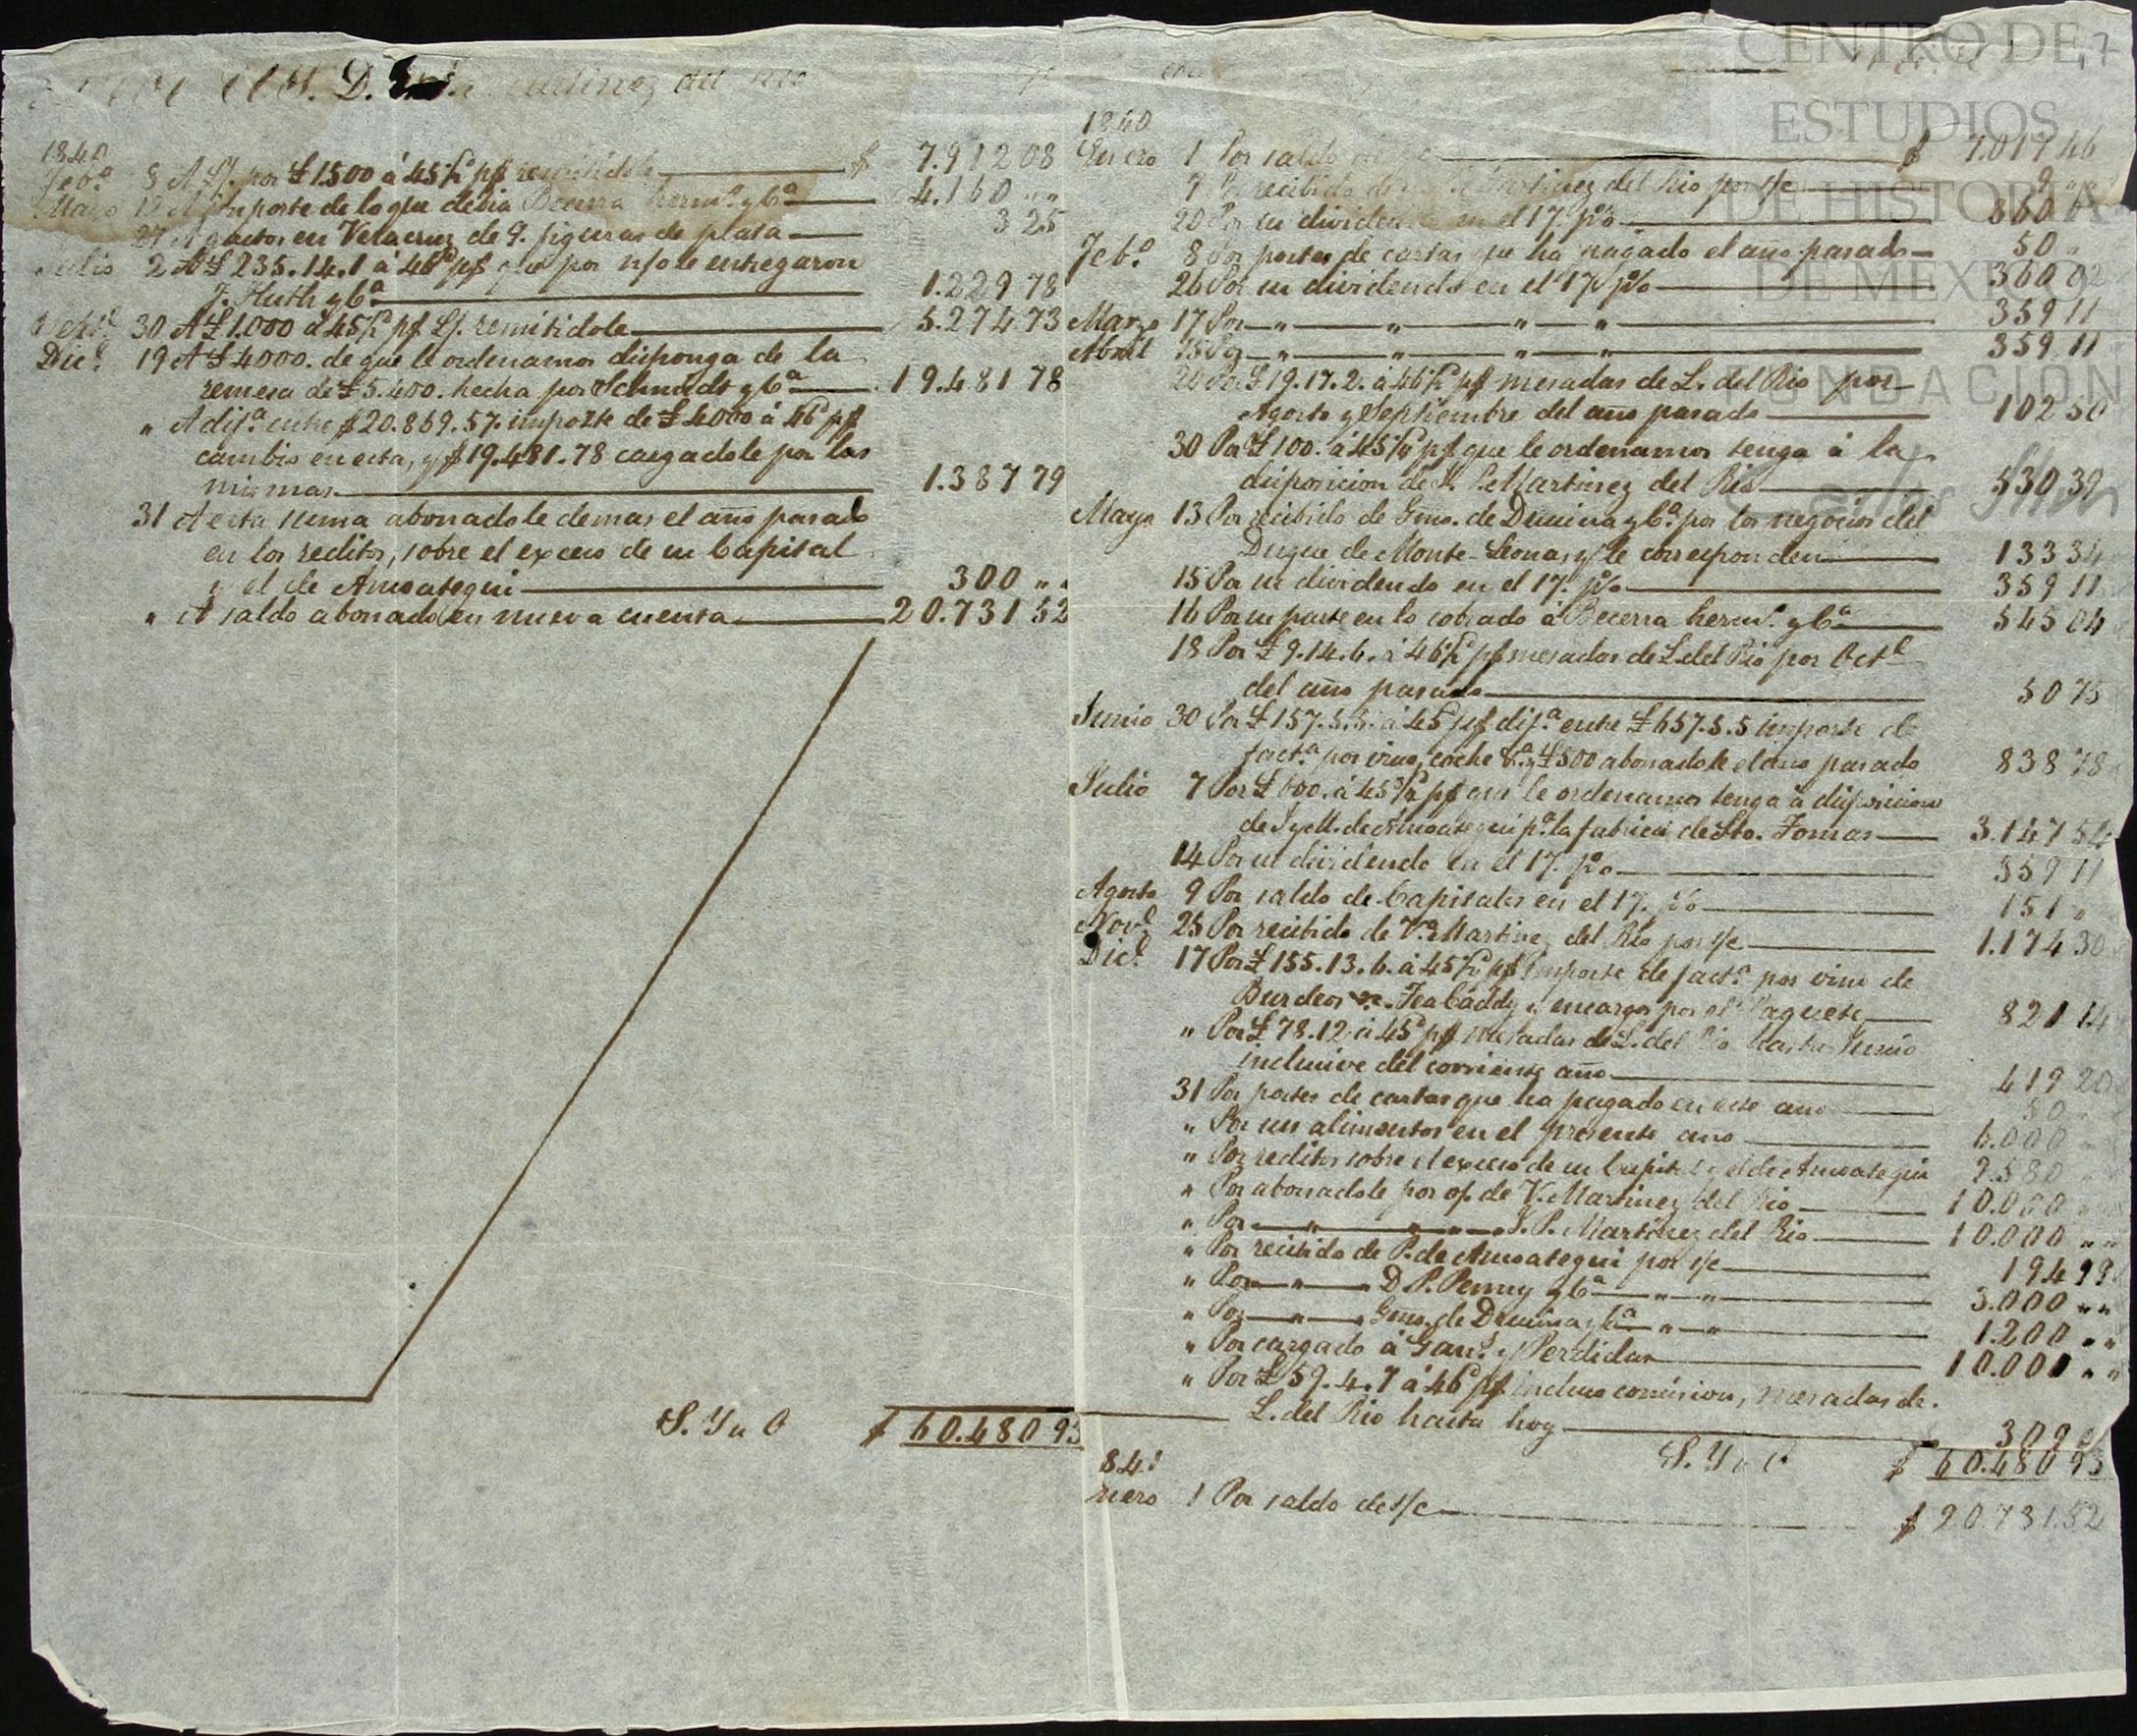 D.
1840
Feb.º 8 A L/. por £1500 á 45½ᵈ p$ remitidole $ 7.912 08
Mayo 12 A importe de lo que debia Becerra herm.ˢ y C.ª 4.160 " "
27 A gastos en Veracruz de 9. figuras de plata 3 25
Julio 2 A £ 235.14.1 á 46ᵈ p$ que por n/o le entregaron
F. Huth y C.ª 1.229 78
30 A £1.000 á 45½ᵈ p$ L/. remitidole 5.274 73
Dic.ᵉ 19 A £ 4000. de que le ordenamos disponga de la
remesa de £ 5.400. hecha por Schmidt y C.ª 19.481 78
" A dif.ª entre $20.869.57. importe de £ 4000 á 46ᵈ p$
cambio en esta, y $19.481.78 cargadole por las
mismas 1.387 79
31 A esta suma abonadole demas el año pasado
en los reditos, sobre el exceso de su Capital
y el de Ansoategui 300 " "
" A saldo abonado en nueva cuenta 20.731 52
S. Y u O $ 60.480 93
1840
Enero 1 Por saldo $ 7.017 46
7 Por recibido de Martinez del Rio por s/c
20 Por su dividendo en el 17. p%
Feb.º 8 Por portes de cartas que ha pagado el año pasado 50 "
26 Por su dividendo en el 17. p% 360 02
Marzo 17 Por " " " " 359 11
Abril 15 Por " " " " 359 11
20 Por £ 19.17.2. á 46½ᵈ p$ mesadas de L. del Rio por
Agosto y Septiembre del año pasado 102 50
30 Por £ 100. á 45¼ p$ que le ordenamos tenga á la
disposicion de J. P. Martinez del Rio 530 39
Mayo 13 Por recibido de Gmo. de Drusina y C.ª por los negocios del
Duque de Monte-Leona, y le corresponden 133 34
15 Por su dividendo en el 17. p% 359 11
16 Por su parte en lo cobrado á Becerra herm.ˢ y C.ª 545 04
18 Por £ 9.14.6. á 46½ p$ mesadas de L. del Rio por Oct.ᵉ
del año pasado 50 75
Junio 30 Por £ 157.5.5. á 45ᵈ p$ dif.ª entre £ 657.5.5 importe de
fact.ª por vino, coche &.ª y £500 abonadole el año pasado 838 78
Julio 7 Por £ 600. á 45¾ p$ que le ordenamos tenga á disposicion
de J y M. de Ansoategui p.ª la fabrica de Sto. Tomas 3.147 54
14 Por su dividendo en el 17. p% 359 11
Agosto 9 Por saldo de Capitales en el 17. p% 151 "
Nov.ᵉ 25 Por recibido de V.ª Martinez del Rio por s/c 1.174 30
Dic.ᵉ 17 Por £ 155.13.6. á 45½ p$ importe de fact.ª por vino de
Burdeos Tea Caddy y encargos por el Paquete 821 14
" Por £ 78.12 á 45ᵈ p$ mesadas de L. del Rio hasta Junio
inclusive del corriente año 419 20
31 Por portes de cartas que ha pagado en este año 50
" Por sus alimentos en el presente año 6.000
" Por reditos sobre el exceso de su Capital y el de Ansoategui 2.580
" Por abonadole por o/. de V. Martinez del Rio 10.000
" Por " " " J. P. Martinez del Rio 10.000 " "
" Por recibido de P. de Ansoategui por s/c 194 99
" Por " D P. Penny y C.ª " " 3.000 " "
" Por " Gmo. de Drusina y C.ª " " 1.200 " "
" Por cargado á Gan.ˢ y Perdidas 10.000 " "
" Por £ 59.4.7 á 46ᵈ p$ incluso comision, mesadas de
L. del Rio hasta hoy 309
S. Y u O $ 60.480 93
841
nero 1 Por saldo de s/c $ 20.731.52
CENTRO DE
ESTUDIOS
DE HISTORIA
DE MEXICO
FUNDACIÓN
Carlos Slim